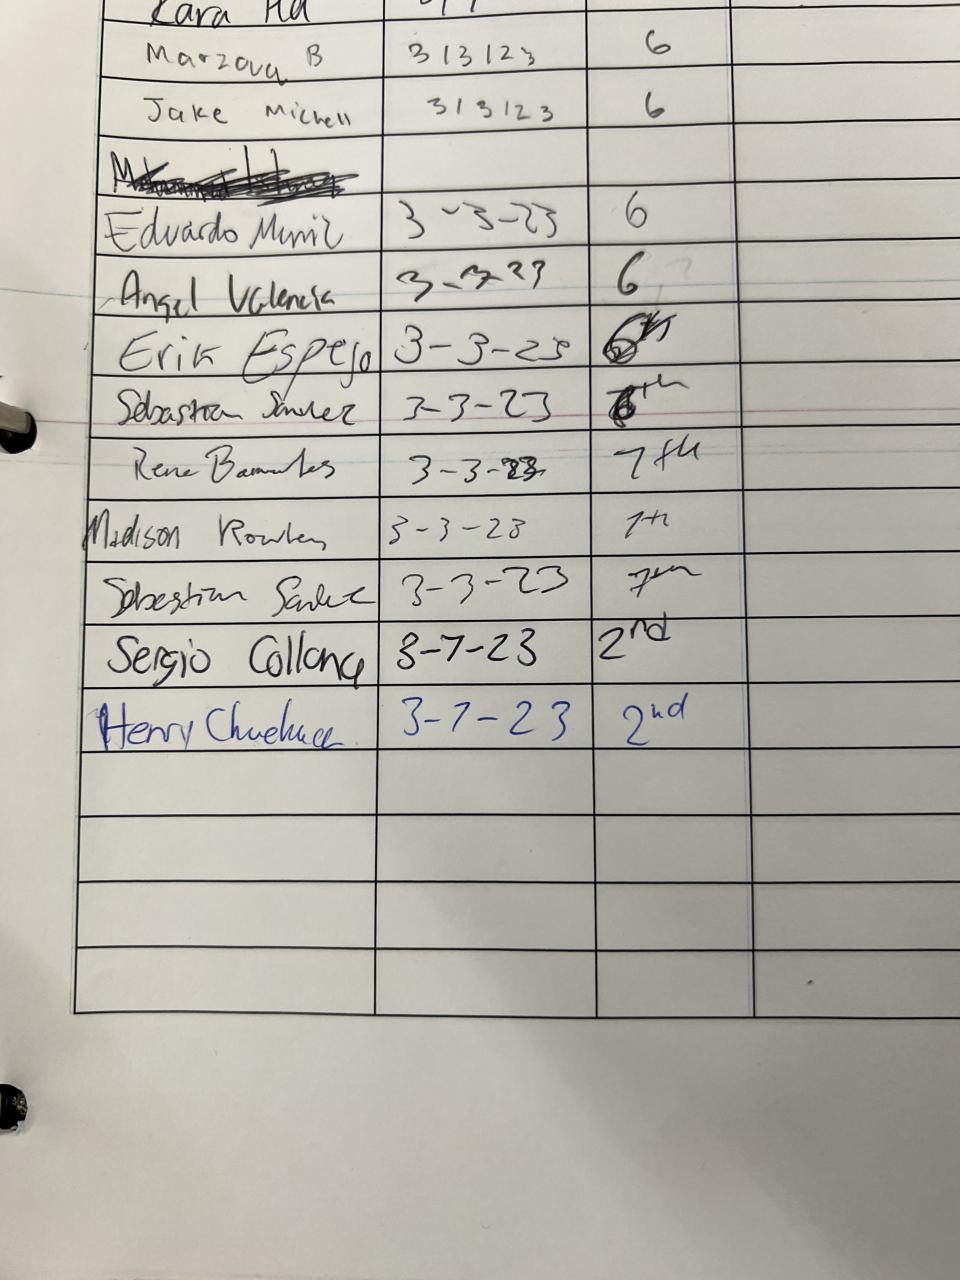 Kara
Marzova B 3/3/23 6
Jake Michell 3/3/23 6
Eduardo Muniz 3-3-23 6
Angel Valencia 3-3-23 6
Erik Espejo 3-3-23 6th
Sebastian Sanchez 3-3-23 6th
Rene 3-3-23 7th
Madison Rowley 3-3-23 7th
Sebastian Sanchez 3-3-23 7th
Sergio 3-7-23 2nd
Henry 3-7-23 2nd